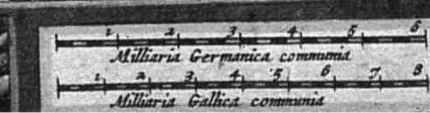 1 2 3 4 5 6
Milliaria Germanica communia
1 2 3 4 5 6 7 8
Milliaria Gallica communia